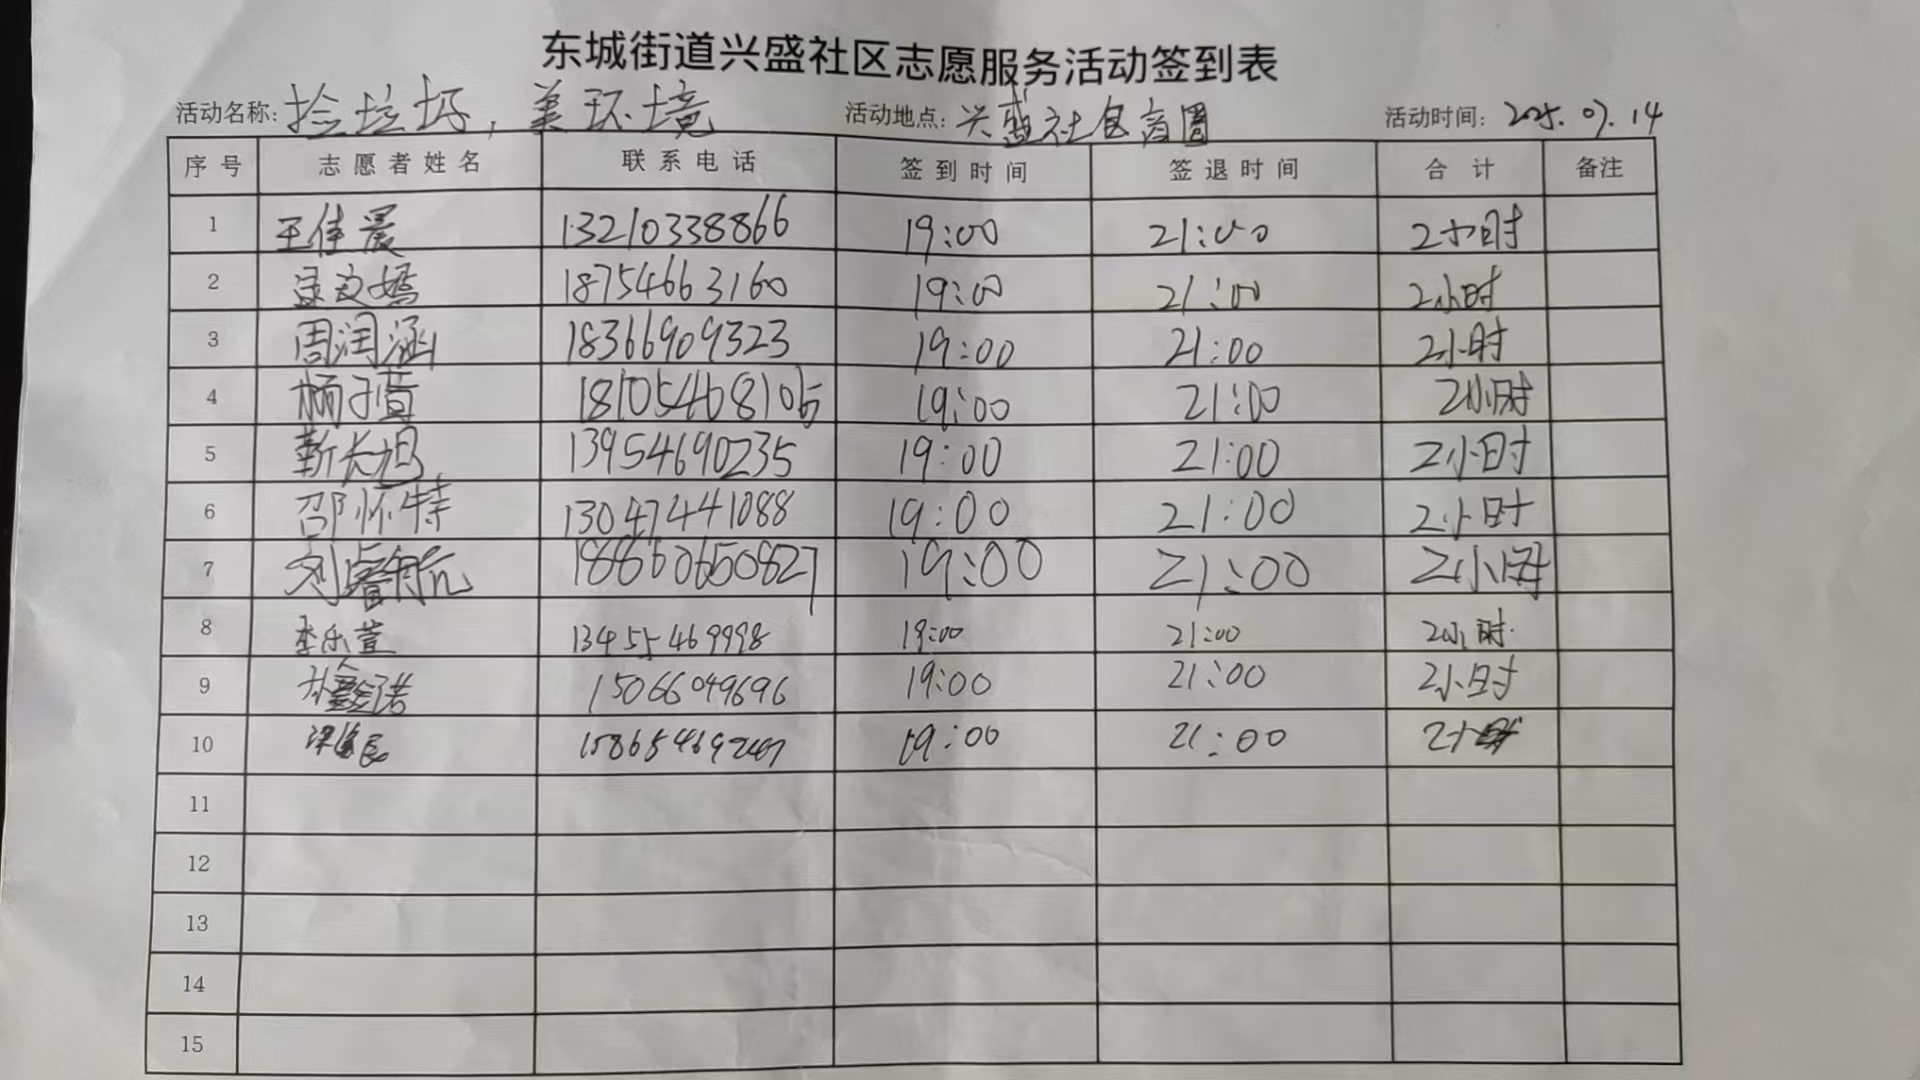 东城街道兴盛社区志愿服务活动签到表
活动名称: 捡垃圾,美环境 活动地点: 兴盛社区商圈 活动时间: 2025.07.14
序号 志愿者姓名 联系电话 签到时间 签退时间 合计 备注
1 王佳晨 13210338866 19:00 21:00 2小时
2 文嫣 18754663160 19:00 21:00 2小时
3 周润涵 18366909323 19:00 21:00 2小时
4 杨子萱 18105468105 19:00 21:00 2小时
5 靳长旭 13954690235 19:00 21:00 2小时
6 邵怀特 13047441088 19:00 21:00 2小时
7 刘睿 188660650827 19:00 21:00 2小时
8 李乐萱 13455469998 19:00 21:00 2小时
9 孙鑫诺 15066049696 19:00 21:00 2小时
10 梁 19:00 21:00 2小时
11
12
13
14
15